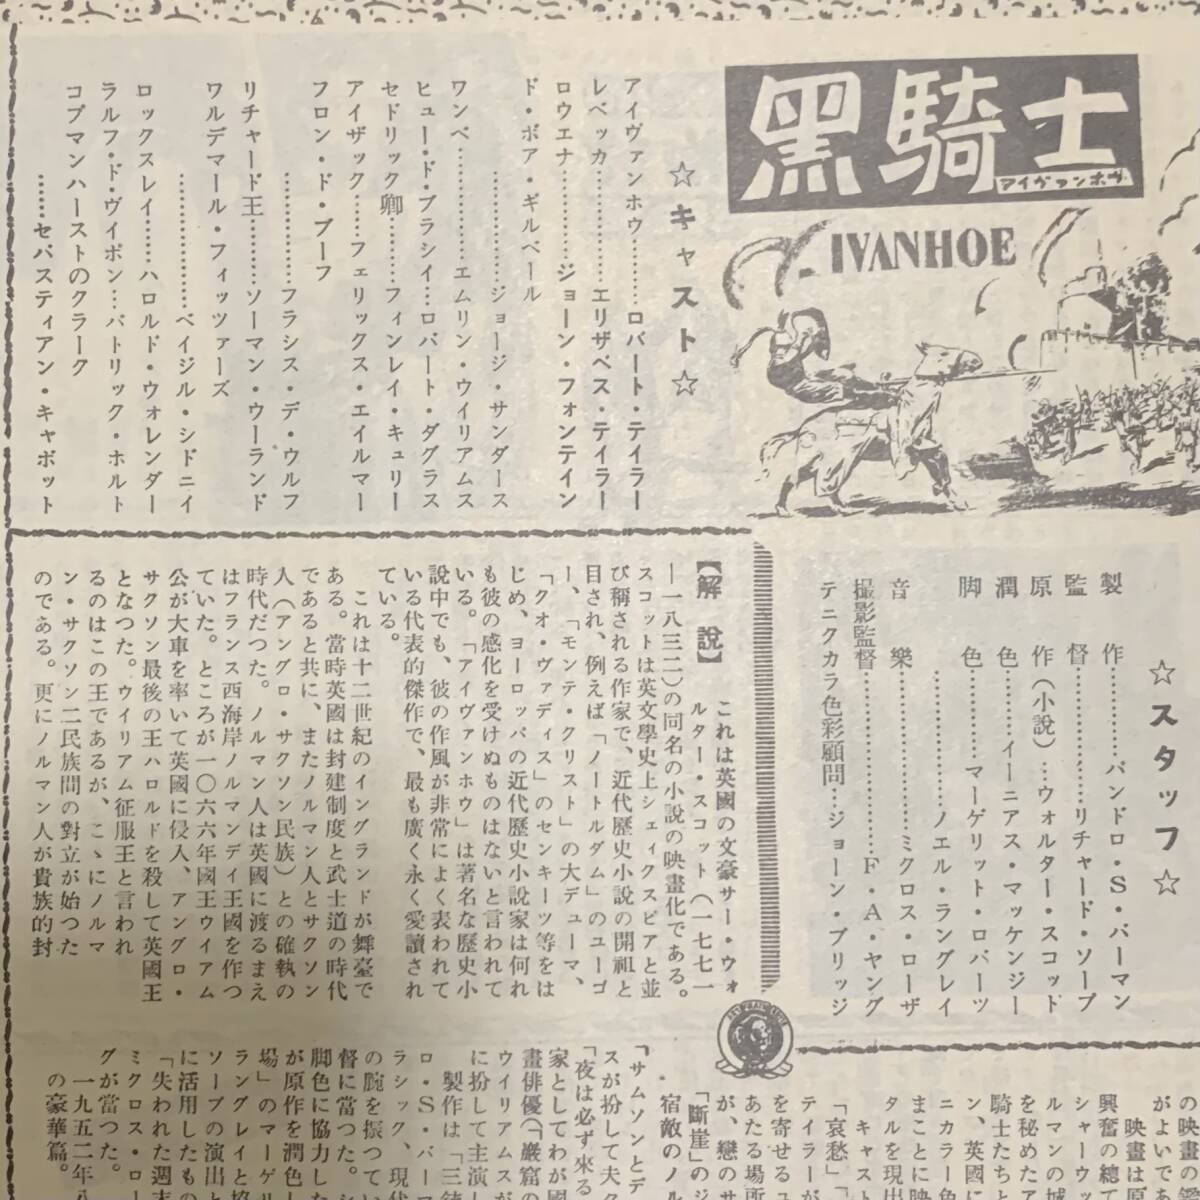 黒騎士
アイヴァンホウ
IVANHOE
☆キャスト☆
アイヴァンホウ………ロバート・テイラー
レベッカ…………エリザベス・テイラー
ロウエナ…………ジョーン・フォンテイン
ド・ボア・ギルベール
…………ジョージ・サンダース
ワンベ…………エムリン・ウイリアムス
ヒュー・ド・ブラシイ…ロバート・ダグラス
セドリック卿………フィンレイ・キュリー
アイザック……フェリックス・エイルマー
フロン・ド・ブーフ
…………フランシス・デ・ウルフ
リチャード王…………ソーマン・ウーランド
ワルデマール・フィッツァーズ
……………ベイジル・シドニイ
ロックスレイ……ハロルド・ウォレンダー
ラルフ・ド・ヴイポン…パトリック・ホルト
コプマンハーストのクラーク
……セバスティアン・キャボット
☆スタッフ☆
製作…………パンドロ・S・バーマン
監督…………リチャード・ソープ
原作（小説）…ウォルター・スコット
潤色……イーニアス・マッケンジー
脚色………マーゲリット・ロバーツ
…………ノエル・ラングレイ
音樂…………ミクロス・ローザ
撮影監督…………F・A・ヤング
テニクカラ色彩顧問…ジョーン・ブリッジ
【解說】 これは英國の文豪サー・ウォ
ルター・スコット（一七七一
―一八三二）の同名の小説の映畫化である。
スコットは英文學史上シェイクスピアと並
び稱される作家で、近代歷史小說の開祖と
目され、例えば「ノートルダム」のユーゴ
ー、「モンテ・クリスト」の大デューマ、
「クオ・ヴァディス」のセンキーツ等をは
じめ、ヨーロッパの近代歷史小說家は何れ
も彼の感化を受けぬものはないと言われて
いる。「アイヴァンホウ」は著名な歷史小
說中でも、彼の作風が非常によく表われて
いる代表的傑作で、最も廣く永く愛讀され
ている。
これは十二世紀のイングランドが舞臺で
ある。當時英國は封建制度と武士道の時代
であると共に、またノルマン人とサクソン
人（アングロ・サクソン民族）との確執の
時代だつた。ノルマン人は英國に渡るまえ
はフランス西海岸ノルマンデイ王國を作つ
ていた。ところが一〇六六年國王ウイアム
公が大車を率いて英國に侵入、アングロ・
サクソン最後の王ハロルドを殺して英國王
となつた。ウイリアム征服王と言われ
るのはこの王であるが、こゝにノルマ
ン・サクソン二民族間の對立が始つた
のである。更にノルマン人が貴族的封
の映畫の
がよいであ
映畫は原
興奮の總
シャーウッ
ルマンの城
を秘めたア
騎士たちと
ン、英國の
ニカラー色
まことに映
タルを現出
キャスト
テイラーが
を寄せるユ
あたる場所
が、戀のサ
「斷崖」のジ
宿敵のノル
「哀愁」「
「サムソンとデ
スが扮して夫ク
「夜は必ず來る
家としてわが國
畫俳優（「巖窟の
ウイリアムスが
に扮して主演し
製作は「三銃
ロ・S・バーマ
ラシック、現代
の腕を振つてい
督に當つた。シ
脚色に協力した
が原作を潤色し
場」のマーゲリ
ラングレイと協
ソープの演出と
に活用したもの
「失われた週末
ミクロス・ロー
グが當つた。
一九五二年八
の豪華篇。